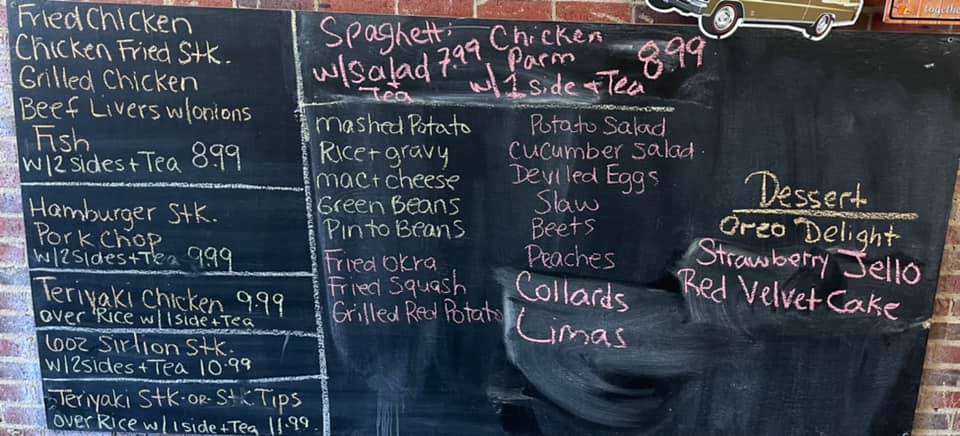 Fried Chicken
Chicken Fried Stk.
Grilled Chicken
Beef Livers w/onions
Fish
w/2 sides + Tea 899
Hamburger Stk.
Pork Chop
w/2sides+Tea 999
Teriyaki Chicken 999
over Rice w/1side+Tea
6oz Sirlion Stk.
w/2sides + Tea 10.99
Teriyaki Stk-or-Stk Tips
over Rice w/1side+Tea 11.99
Spaghetti
w/Salad 799
Tea
Chicken
Parm 899
w/1 side + Tea
mashed Potato
Rice + gravy
mac + cheese
Green Beans
Pinto Beans
Fried Okra
Fried Squash
Grilled Red Potato
Potato Salad
Cucumber Salad
Deviled Eggs
Slaw
Beets
Peaches
Collards
Limas
Dessert
Oreo Delight
Strawberry Jello
Red Velvet Cake